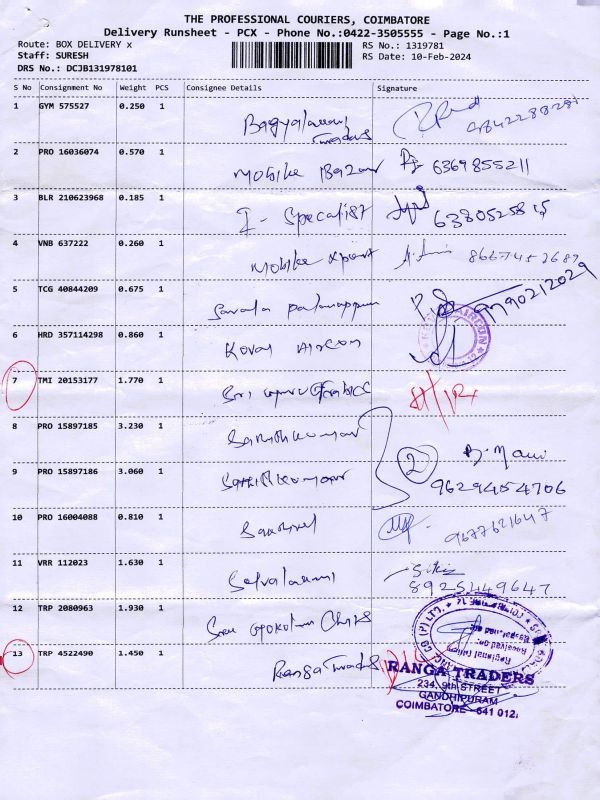 THE PROFESSIONAL COURIERS, COIMBATORE
Delivery Runsheet - PCX - Phone No.:0422-3505555 - Page No.:1
Route: BOX DELIVERY x
RS No.: 1319781
Staff: SURESH
RS Date: 10-Feb-2024
DRS No.: DCJB131978101
S No Consignment No Weight PCS Consignee Details Signature
1 GYM 575527 0.250 1
Traders
2 PRO 16036074 0.570 1 Mobike Bazar 6369855211
3 BLR 210623968 0.185 1 I - Specalist
4 VNB 637222 0.260 1 Mobike Xpert
5 TCG 40844209 0.675 1 9790212029
6 HRD 357114298 0.860 1 Kovai Aircon
7 TMI 20153177 1.770 1 Sri
8 PRO 15897185 3.230 1 Sathishkumar
2 B. Mani
9 PRO 15897186 3.060 1 Sathishkumar 9629454706
10 PRO 16004088 0.810 1 9677621647
11 VRR 112023 1.630 1 Selvalaxmi
8925449647
12 TRP 2080963 1.930 1 Sree Gokulam Chits
13 TRP 4522490 1.450 1 Ranga Traders
Received on:
Regional Office
RANGA TRADERS
234, 9th STREET
GANDHIPURAM
COIMBATORE - 641 012.